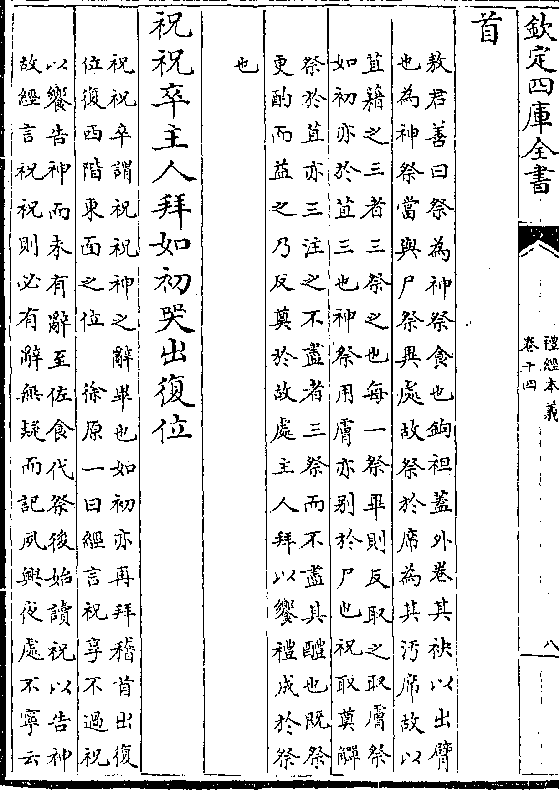 欽定四庫全書
禮經本義
卷十四
八
首
敖君善曰祭為神祭食也鉤袒蓋外卷其袂以出臂
也為神祭當與尸祭異處故祭於席為其汚席故以
苴藉之三者三祭之也每一祭畢則反取之取膚祭
如初亦於苴三也神祭用膚亦别於尸也祝取奠觶
祭於苴亦三注之不盡者三祭而不盡其醴也既祭
更酌而益之乃反奠於故處主人拜以饗禮成於祭
也
祝祝卒主人拜如初哭出復位
祝祝卒謂祝祝神之辭畢也如初亦再拜稽首出復
位復西階東面之位　徐原一曰經言祝享不過祝
以饗告神而未有辭至佐食代祭後始讀祝以告神
故經言祝祝則必有辭無疑而記夙興夜處不寧云